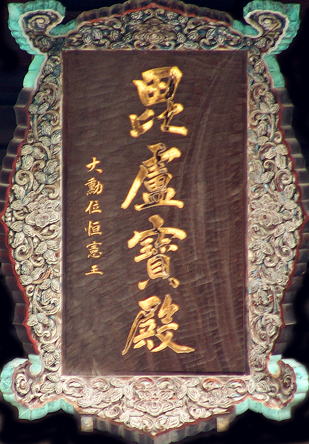 毘盧寶殿
大勳位恒憲王